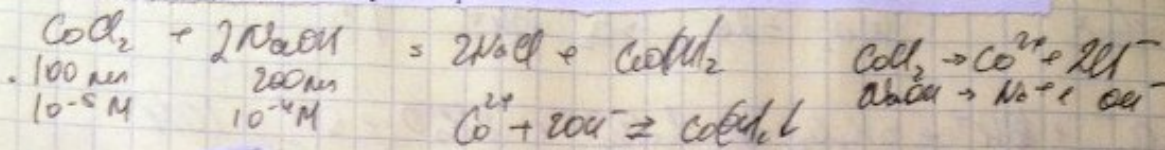 CoCl₂ + 2NaOH = 2NaCl + Co(OH)₂
. 100 мл 200 мл
10⁻⁵ M 10⁻⁴ M
Co²⁺ + 2OH⁻ ⇄ Co(OH)₂↓
CoCl₂ → Co²⁺ + 2Cl⁻
NaOH → Na⁺ + OH⁻